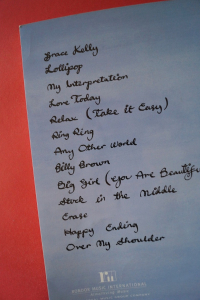 Grace Kelly
Lollipop
My Interpretation
Love Today
Relax (Take It Easy)
Ring Ring
Any Other World
Billy Brown
Big Girl (You Are Beautiful
Stuck in the Middle
Erase
Happy Ending
Over My Shoulder